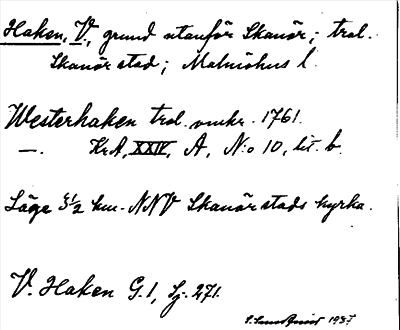 Haken, V., grund utanför Skanör; trol.
Skanör stad; Malmöhus l.
Westerhaken trol. omkr. 1761.
—. KrA, XXIV, A, N:o 10, lit. b.
Läge 3 1/2 km. NNV Skanörstads kyrka.
V. Haken G. 1, Sj. 271.
1937